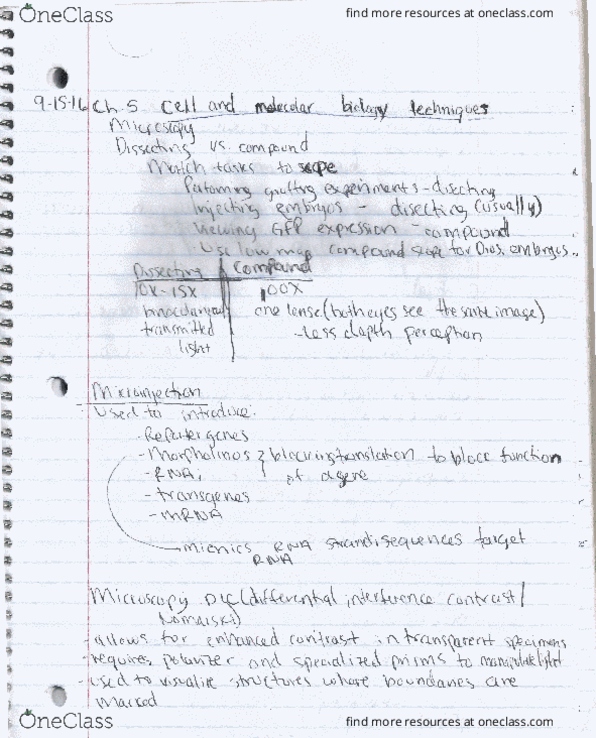 OneClass
find more resources at oneclass.com
9-15-16 Ch. 5 Cell and molecular biology techniques
Microscopy
Dissecting vs. compound
Match tasks to scope
Performing grafting experiments - disecting
Injecting embryos - disecting (usually)
Viewing GFP expression - compound
Use low mag compound scope for Dros. embryos.
Dissecting | Compound
10x-15x 100x
binocular one lense (both eyes see the same image)
transmitted - less depth perception
light
Microinjection
Used to introduce:
- Reporter genes
- Morpholinos } blocking translation to block function
- RNAi of a gene
- transgenes
- mRNA
mimics RNA strand; sequences target
RNA
Microscopy: DIC (differential interference contrast/
Nomarski)
- allows for enhanced contrast in transparent specimens
- requires polarizer and specialized prisms to manipulate light
- used to visualize structures where boundaries are
marked
OneClass
find more resources at oneclass.com